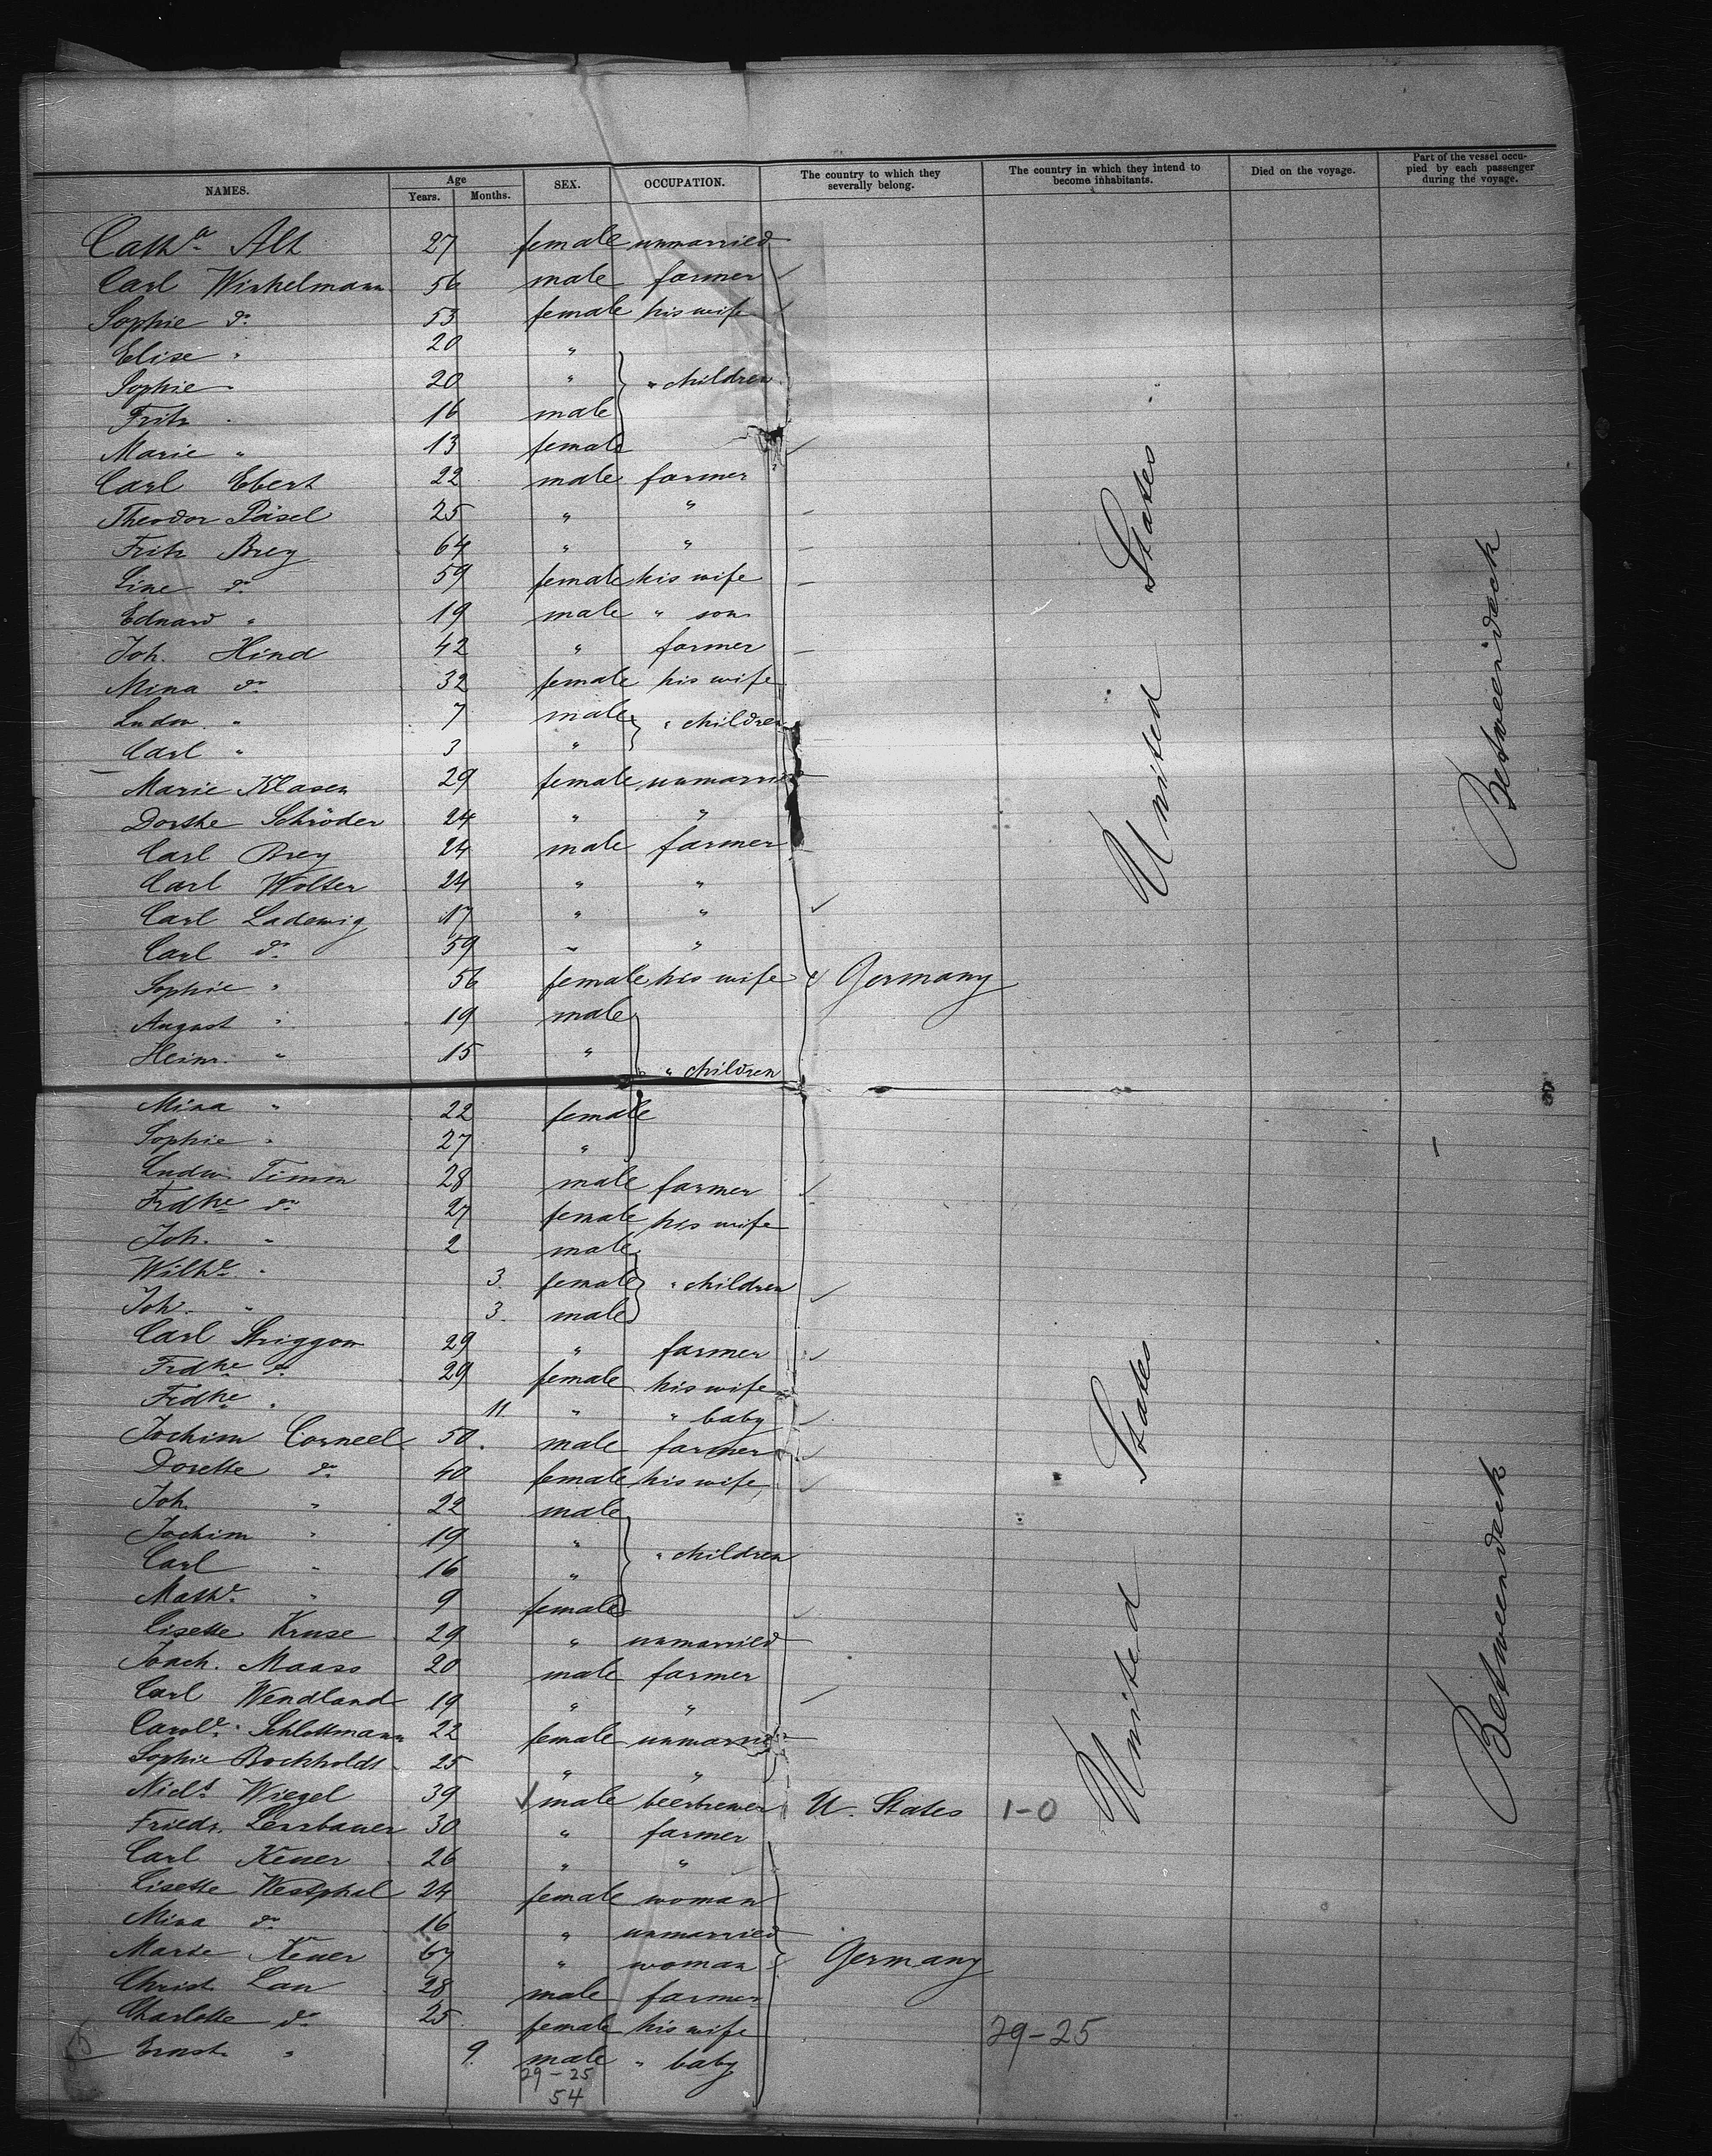 NAMES. Age Years. Months. SEX. OCCUPATION. The country to which they severally belong. The country in which they intend to become inhabitants. Died on the voyage. Part of the vessel occupied by each passenger during the voyage.
Cath.a Alt 27 female unmarried
Carl Winkelmann 56 male farmer
Sophie do 53 female his wife
Elise " 20 "
Sophie " 20 " " children
Fritz " 16 male
Marie " 13 female
Carl Ebert 22 male farmer
Theodor Päsel 25 " "
Fritz Brey 64 " "
Line do 59 female his wife
Eduard " 19 male " son
Joh. Hind 42 " farmer
Mina do 32 female his wife
Ludw. " 7 male " children
Carl " 3 "
Marie Klasen 29 female unmarried
Dorthe Schröder 24 " "
Carl Brey 24 male farmer
Carl Wolter 24 " "
Carl Ladewig 17 " "
Carl do 59 " "
Sophie " 56 female his wife Germany
August " 19 male
Heinr. " 15 " " children
Mina " 22 female
Sophie " 27 "
Ludw. Timm 28 male farmer
Frdke do 27 female his wife
Joh. " 2 male
Wilhe " 3. female " children
Joh. " 3. male
Carl Striggow 29 " farmer
Frdke do 29 female his wife
Frdke " 11. " " baby
Jochim Corneel 50. male farmer
Dorette do 40 female his wife
Joh. " 22 male
Jochim " 19 " " children
Carl " 16 "
Math.e " 9 female
Lisette Kruse 29 " unmarried
Joach. Maass 20 male farmer
Carl Wendland 19 " "
Carole. Schlottmann 22 female unmarried
Sophie Bockholdt 25 " "
Nicls Wiegel 39 male beerbrewer U. States 1-0
Friedr. Lerrbauer 30 " farmer
Carl Keuer 26 " "
Lisette Westphal 24 female woman
Mina do 16 " unmarried
Marie Keuer 67 " woman Germany
Christ. Lau 28 male farmer
Charlotte do 25 female his wife 29-25
Ernst " 9. male " baby
29-25
54
United States
Betweendeck
United States
Betweendeck